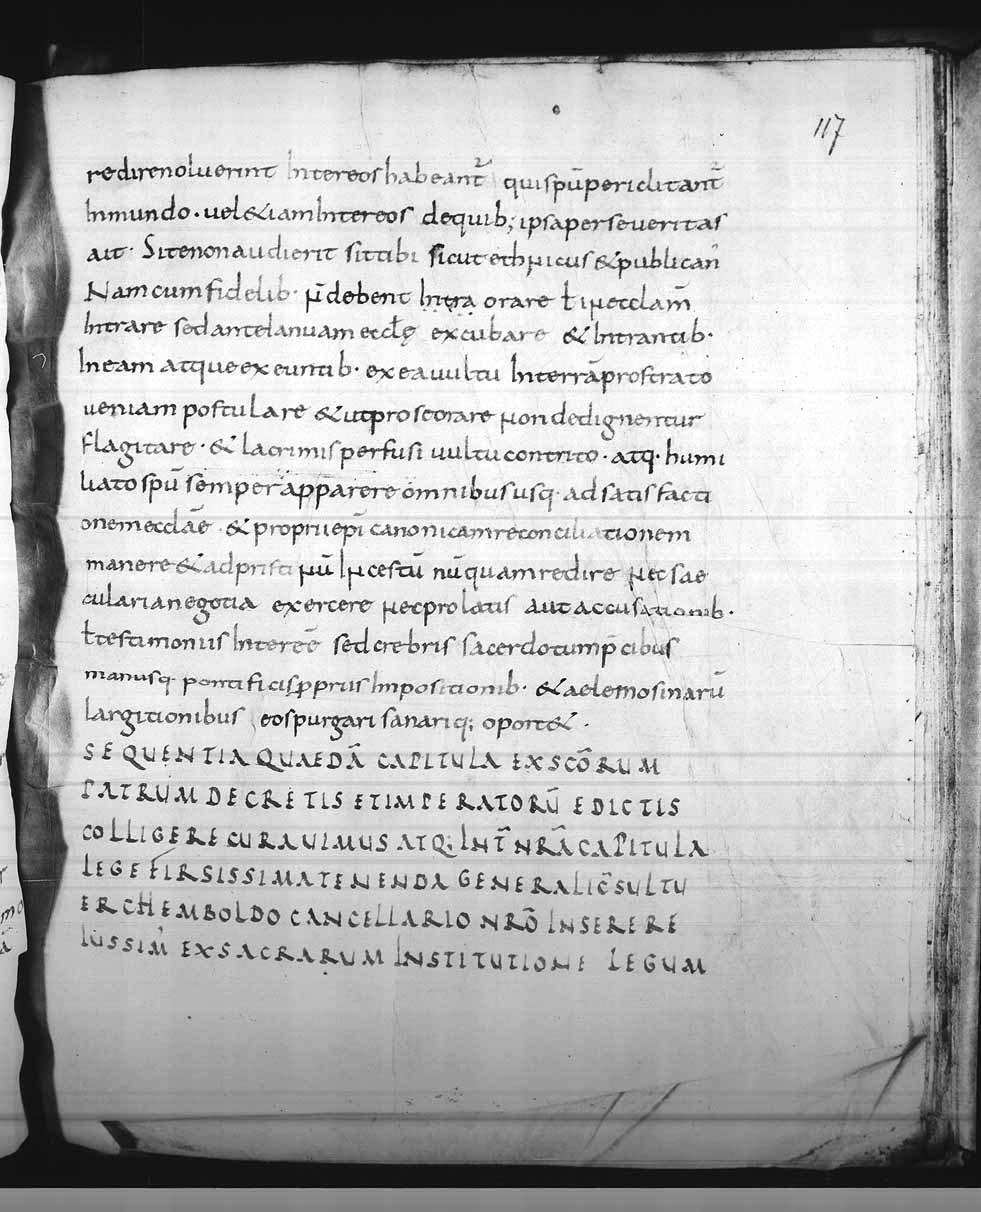 117
redire noluerint Inter eos habeant᷑ qui spū periclitant᷑
In mundo · uel & iam Inter eos de quib; ipsa per se ueritas
ait · Si te non audierit sit tibi sicut ethnicus & publican̓
Nam cum fidelib· n̄ debent Intra orare ł in ecclam̄
Intrare sed ante Ianuam eccłę excubare & Intrantib·
In eam atque exeuntib· ex ea uultu In terrā prostrato
ueniam postulare & ut pro se orare non dedignentur
flagitare · & lacrimis perfusi uultu contrito · atq· humi
liato spū semper apparere omnibus usq· ad satisfacti
onem ecclāe · & proprii epī canonicam reconciliationem
manere & ad pristinū Incestū nūquam redire nec sae
cularia negotia exercere nec prolatis aut accusationib·
ł testimoniis Interēē sed crebris sacerdotum p̄cibus
manusq· pontificis ꝓpriis Inpositionib· & aelemosinarū
largitionibus eos purgari sanariq; oport& ·
SEQUENTIA QUAEDĀ CAPITULA EX SCŌRUM
PATRUM DECRETIS ET IMPERATORŪ EDICTIS
COLLIGERE CURAUIMUS ATQ; INT̄ NRĀ CAPITULA
LEGE FIRSISSIMA TENENDA GENERALI C̄SULTU
ERCHEMBOLDO CANCELLARIO NRŌ INSERERE
IUSSIM̓ EX SACRARUM INSTITUTIONE LEGUM